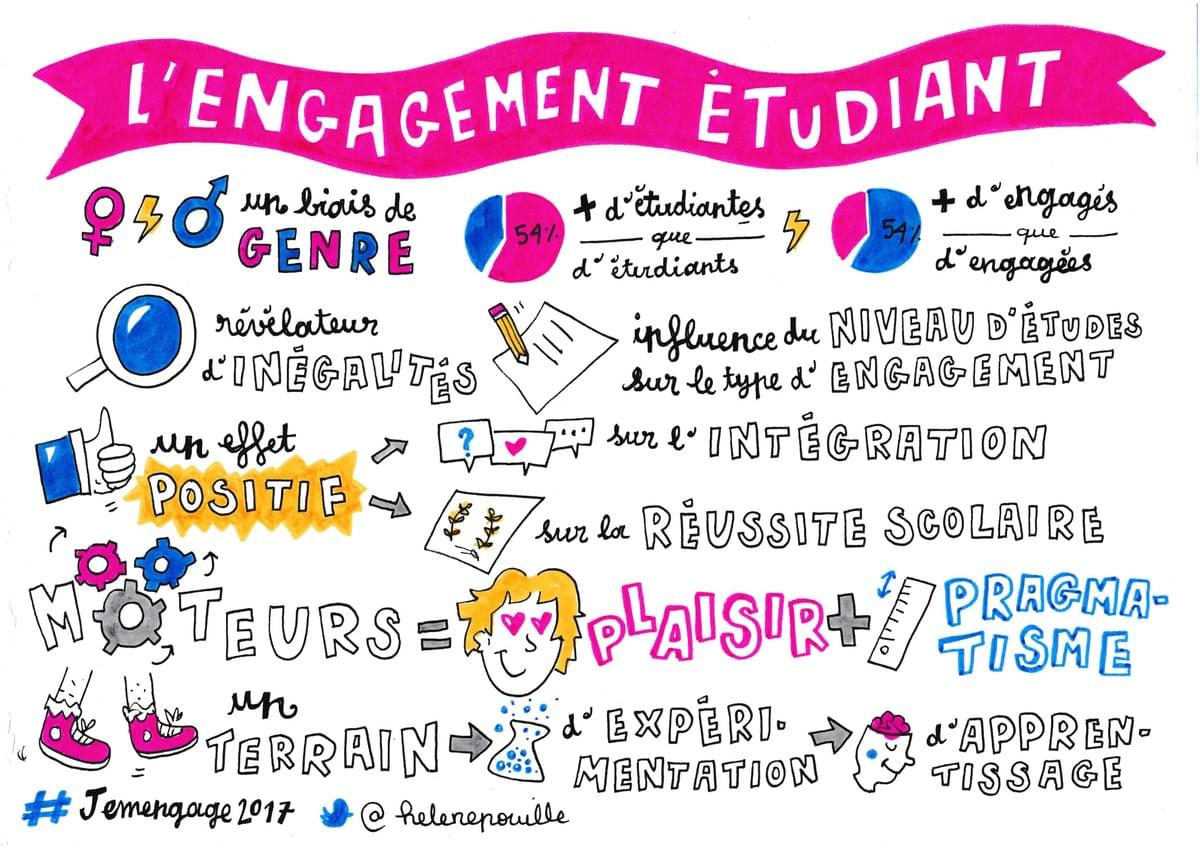 L'ENGAGEMENT ÉTUDIANT
un biais de
GENRE
54%
+ d'étudiantes
que
d'étudiants
54%
+ d'engagés
que
d'engagées
révélateur
d'INÉGALITÉS
influence du NIVEAU D'ÉTUDES
sur le type d'ENGAGEMENT
un effet
POSITIF
?
...
sur l'INTÉGRATION
sur la RÉUSSITE SCOLAIRE
MOTEURS = PLAISIR + PRAGMA-
TISME
un
TERRAIN
d'EXPÉRI-
MENTATION
d'APPREN-
TISSAGE
# Jemengage2017
@helenepouille